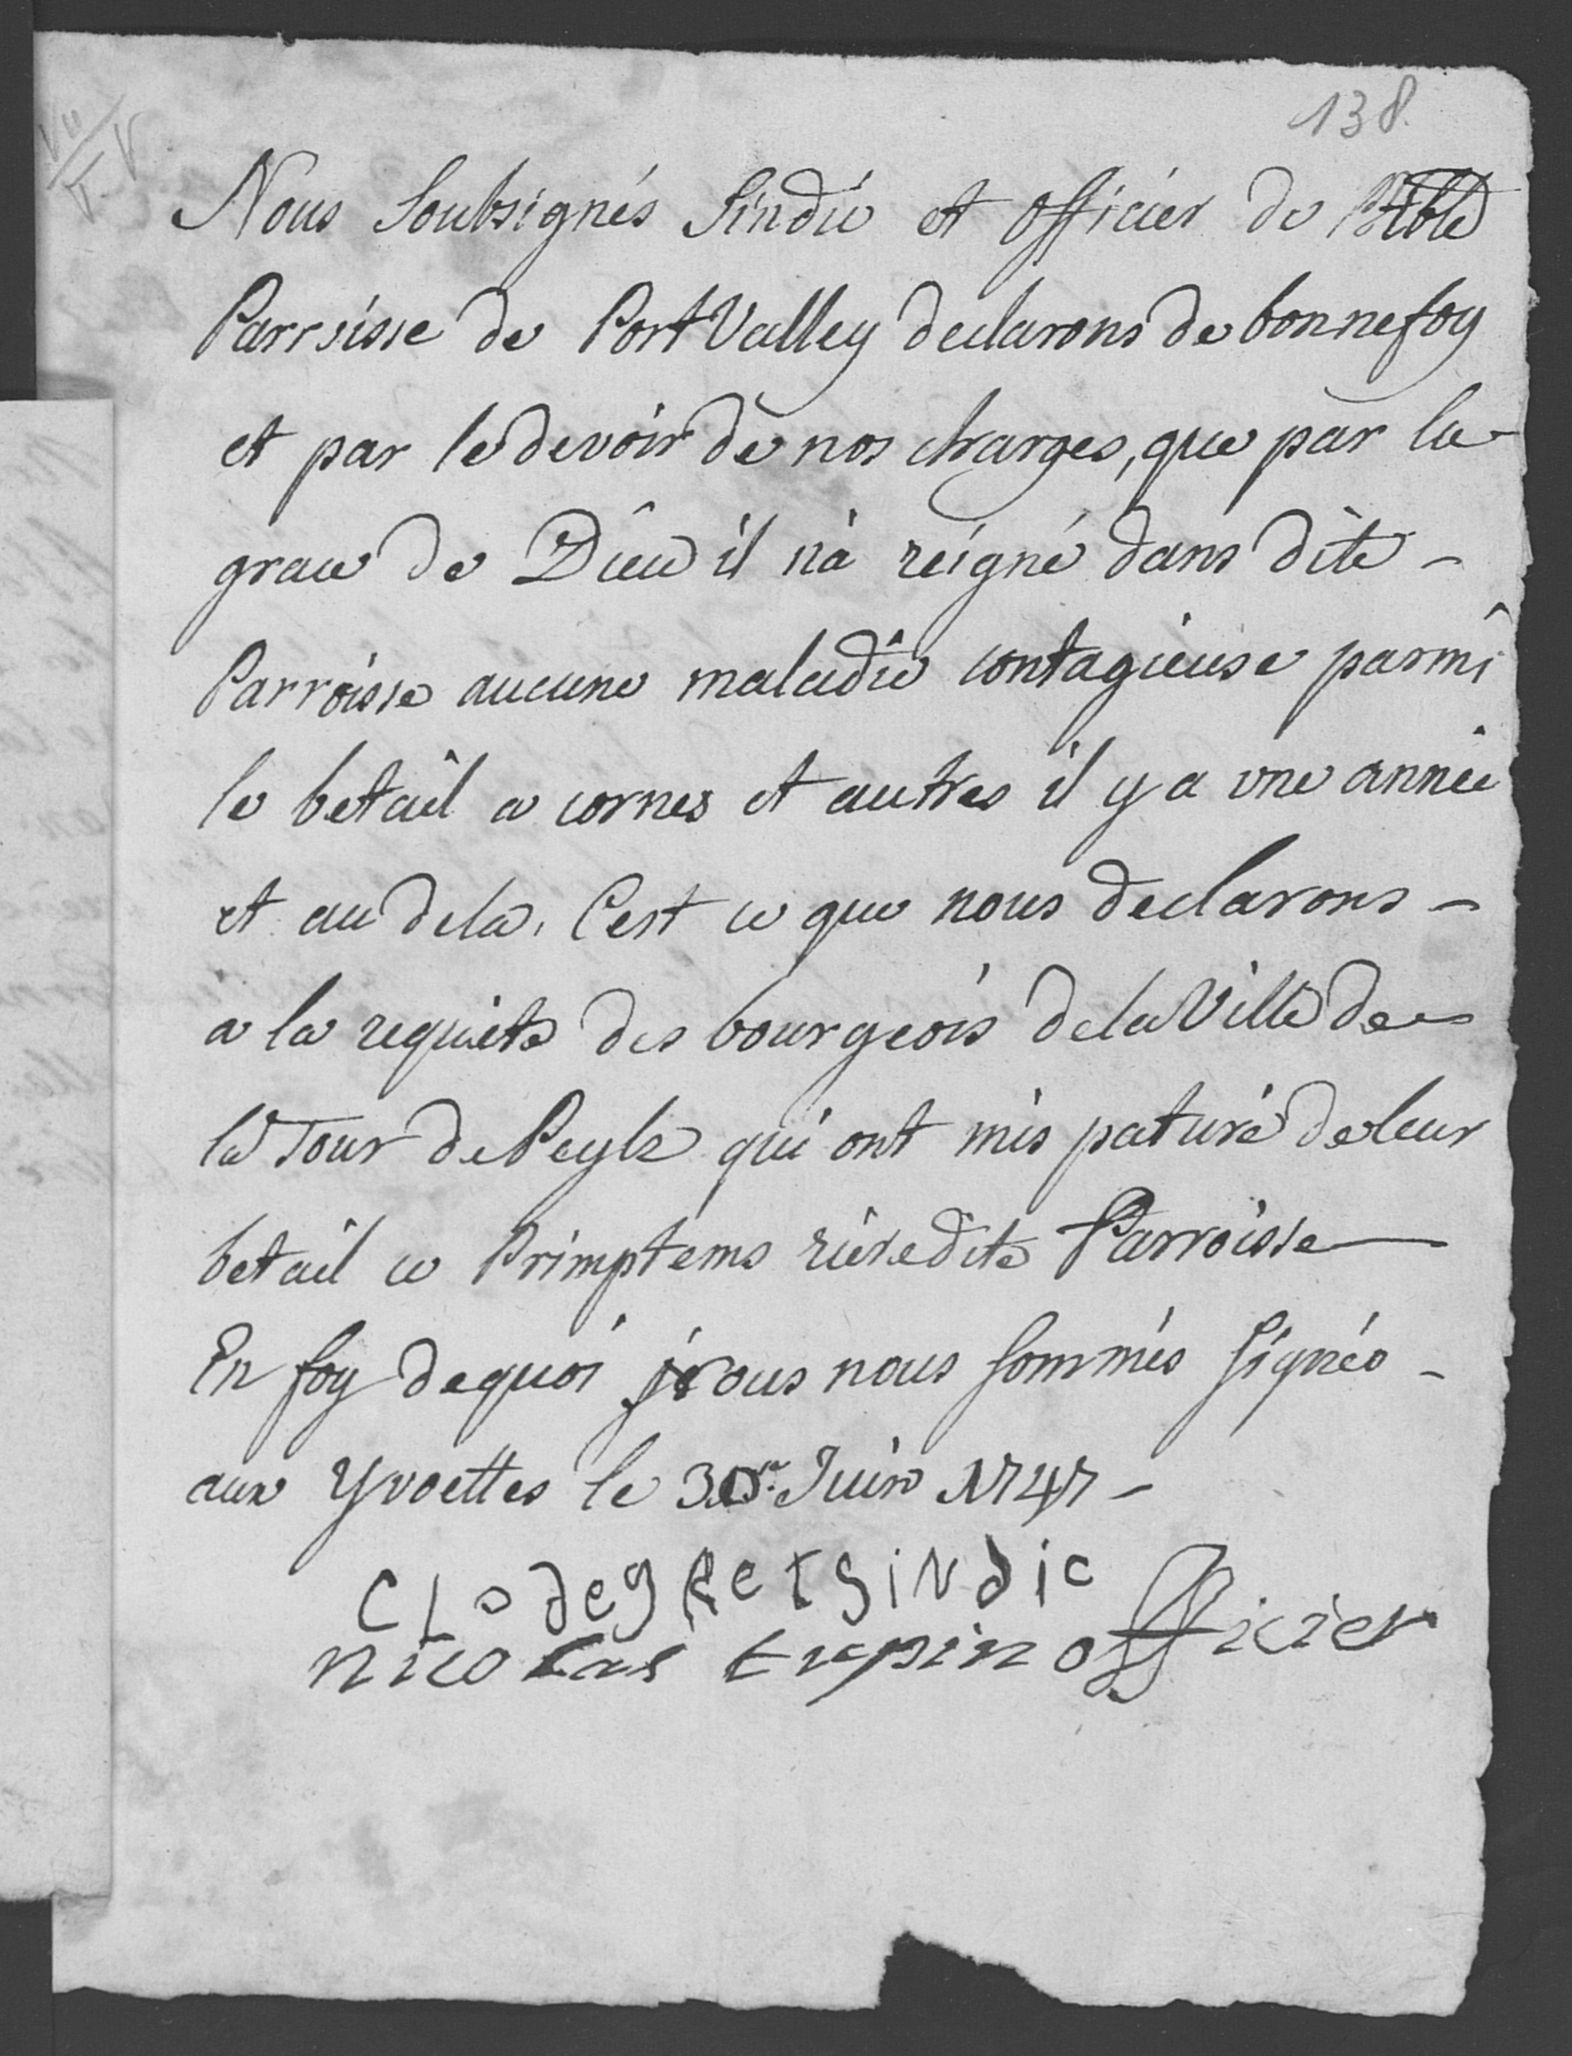 138.
Nous Soubsignés Sindic et officier de Nble
Parroisse de Port Valley declarons de bonnefoy
et par le devoir de nos charges, que par la
grace de Dieu il n'a reigné dans dite -
Parroisse aucune maladie contagieuse parmi
le betail a cornes et autres il y a une année
et au dela, C'est ce que nous declarons -
a la requiete des bourgeois de la Ville de
la Tour de Peylz qui ont mis paturé de leur
betail ce Primptems riere dite Parroisse
En foy de quoi nous nous sommes signés -
aux Yvoettes le 30e. Juin 1747 -
CLodegRet SiNdic
nicolas Eupin officier